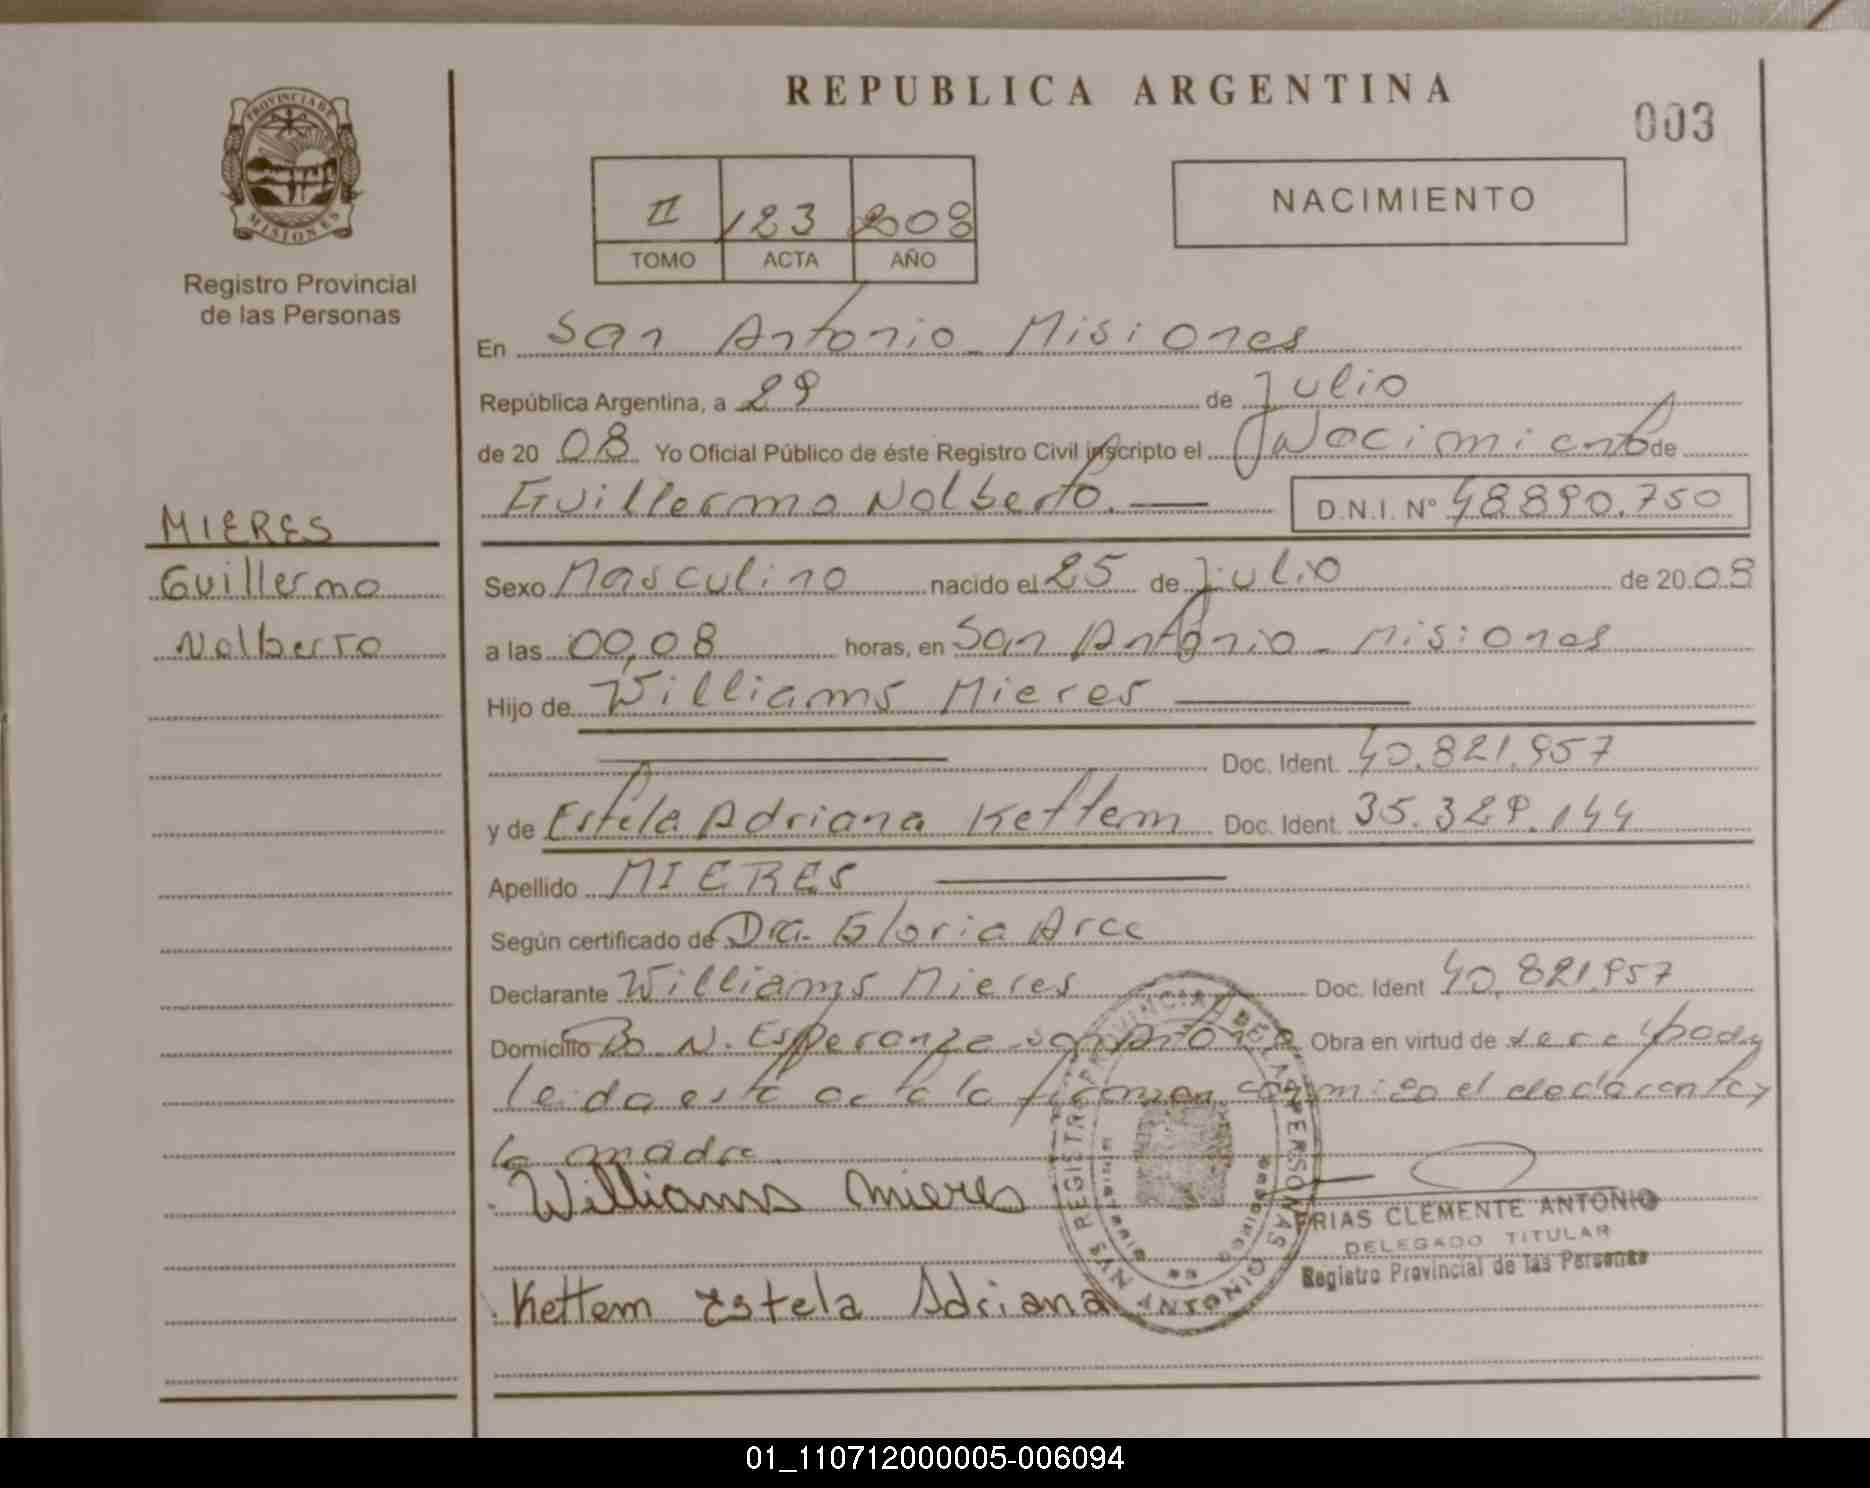 REPUBLICA ARGENTINA
003
PROVINCIA DE
MISIONES
Registro Provincial
de las Personas
II 123 2008
TOMO ACTA AÑO
NACIMIENTO
En San Antonio - Misiones
República Argentina, a 29 de Julio
de 20 08 Yo Oficial Público de éste Registro Civil inscripto el Nacimiento de
Guillermo Nolberto. D.N.I. Nº 48890.750
MIERES
Guillermo
Nolberto
Sexo Masculino nacido el 25 de Julio de 20 08
a las 00,08 horas, en San Antonio - Misiones
Hijo de Williams Mieres
Doc. Ident. 40.821.957
y de Estela Adriana Kettem Doc. Ident. 35.329.144
Apellido MIERES
Según certificado de Dra. Gloria Arce
Declarante Williams Mieres Doc. Ident 40.821.957
Domicilio Bo N. Esperanza - San Antonio Obra en virtud de
leida esta acta la firman conmigo el declarante y
la madre.
Williams Mieres
Kettem Estela Adriana
REGISTRO PROVINCIAL DE LAS PERSONAS
SAN ANTONIO
FRIAS CLEMENTE ANTONIO
DELEGADO TITULAR
Registro Provincial de las Personas
01_110712000005-006094